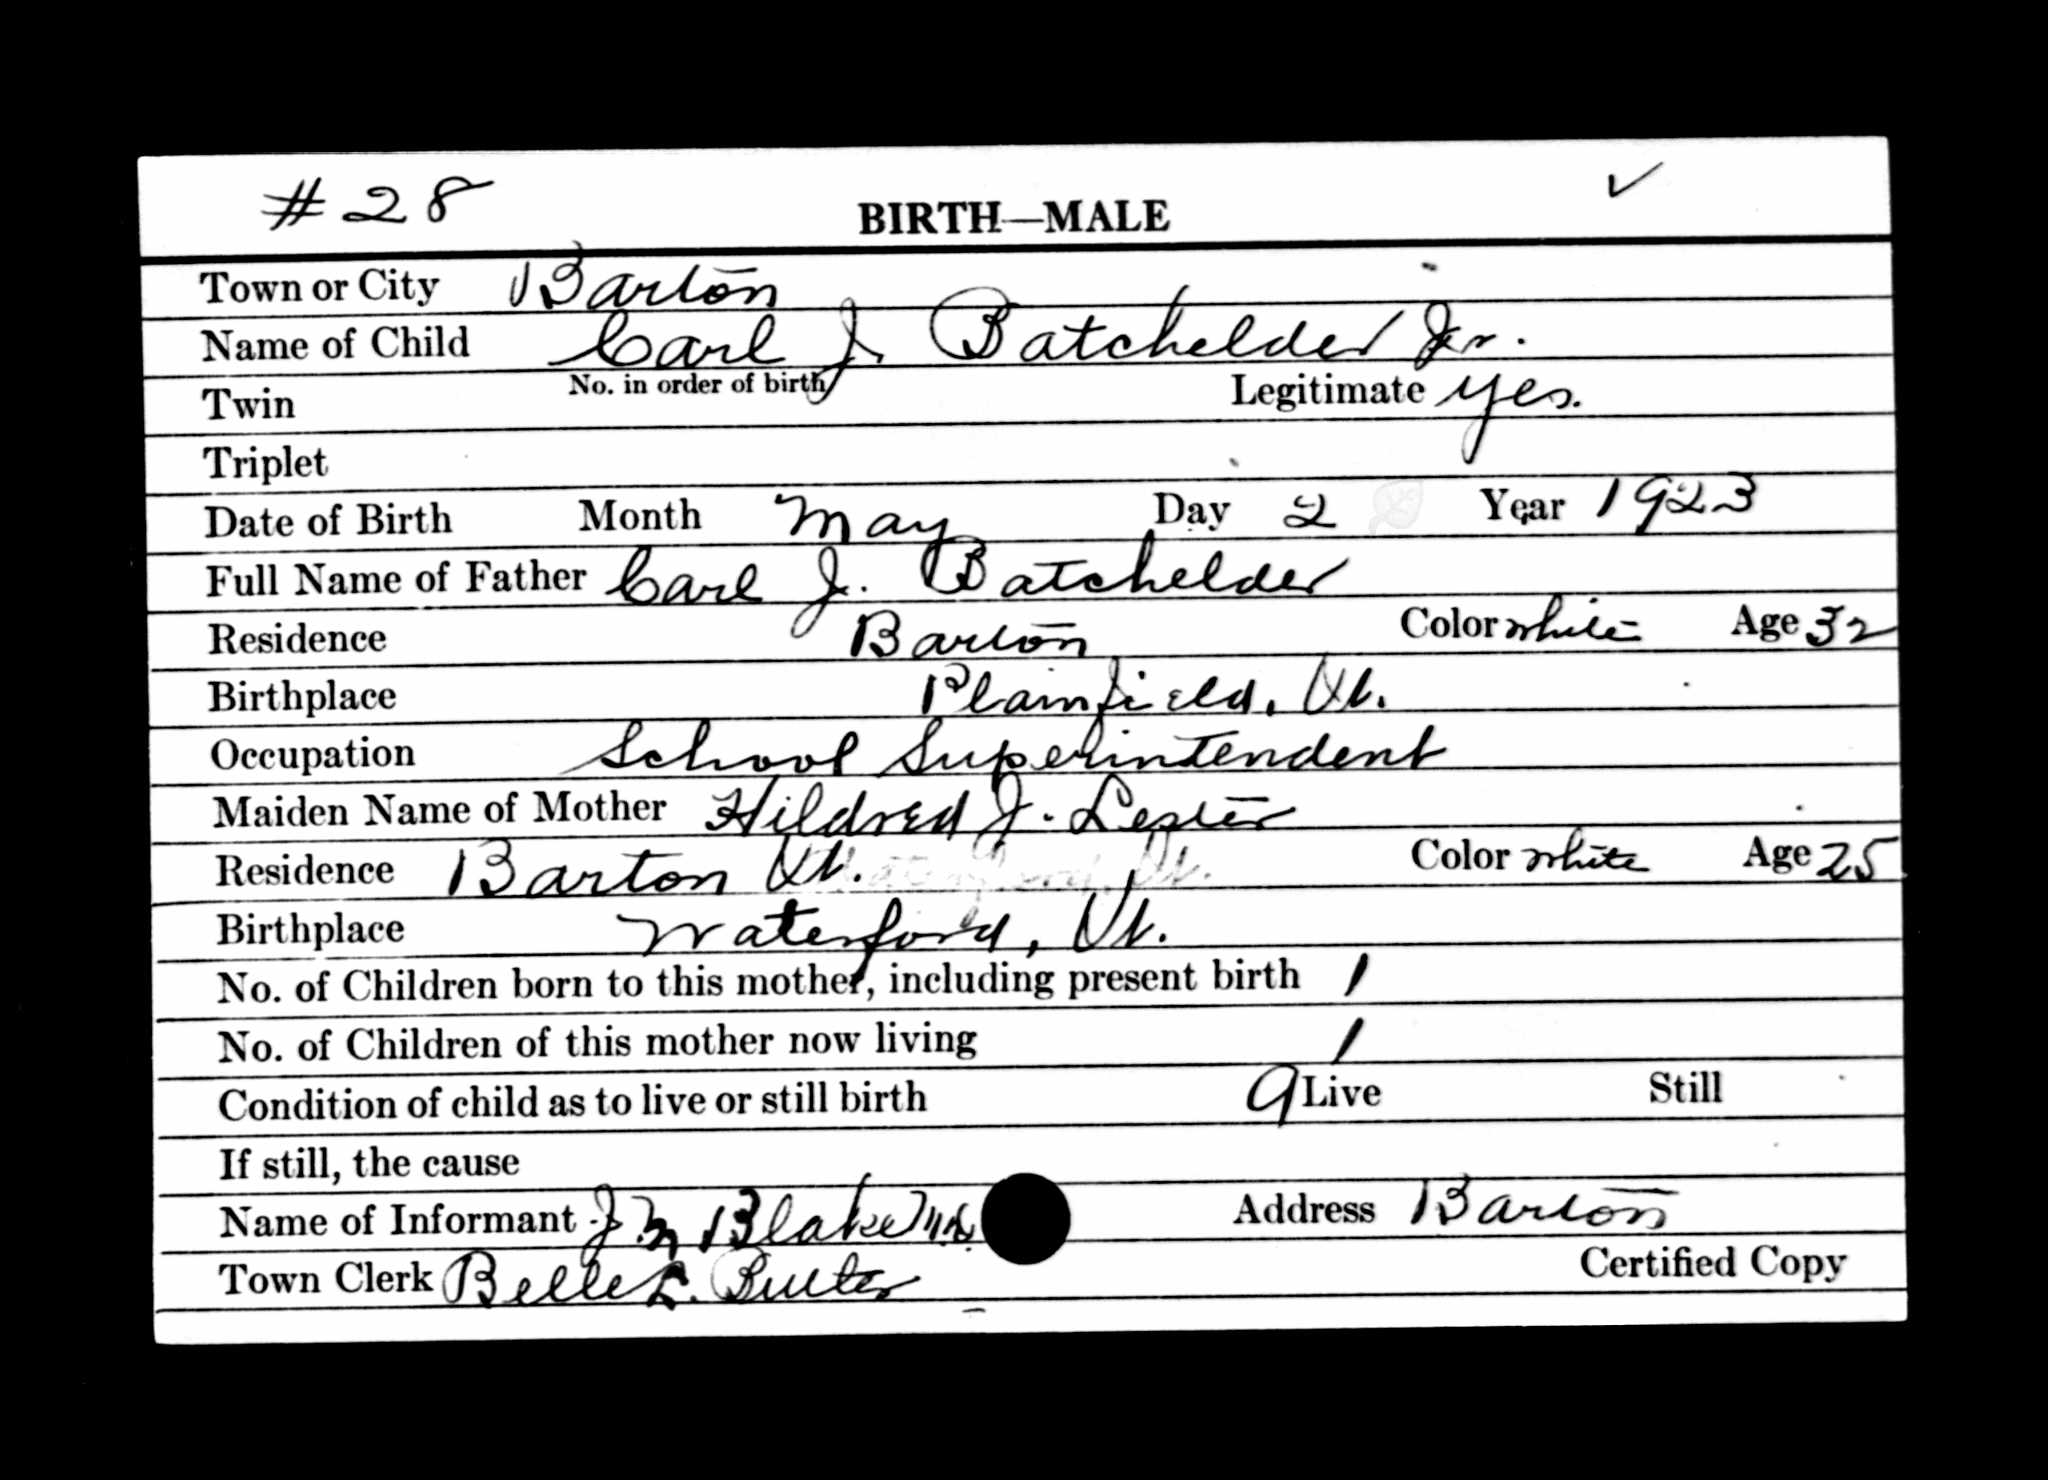 #28
BIRTH—MALE
Town or City Barton
Name of Child Carl J. Batchelder Jr.
Twin No. in order of birth Legitimate yes.
Triplet
Date of Birth Month May Day 2 Year 1923
Full Name of Father Carl J. Batchelder
Residence Barton Color white Age 32
Birthplace Plainfield, Vt.
Occupation School Superintendent
Maiden Name of Mother Hildred J. Lester
Residence Barton Vt. Color white Age 25
Birthplace Waterford, Vt.
No. of Children born to this mother, including present birth 1
No. of Children of this mother now living 1
Condition of child as to live or still birth aLive Still
If still, the cause
Name of Informant J. M Blake M.D. Address Barton
Town Clerk Belle L. Certified Copy